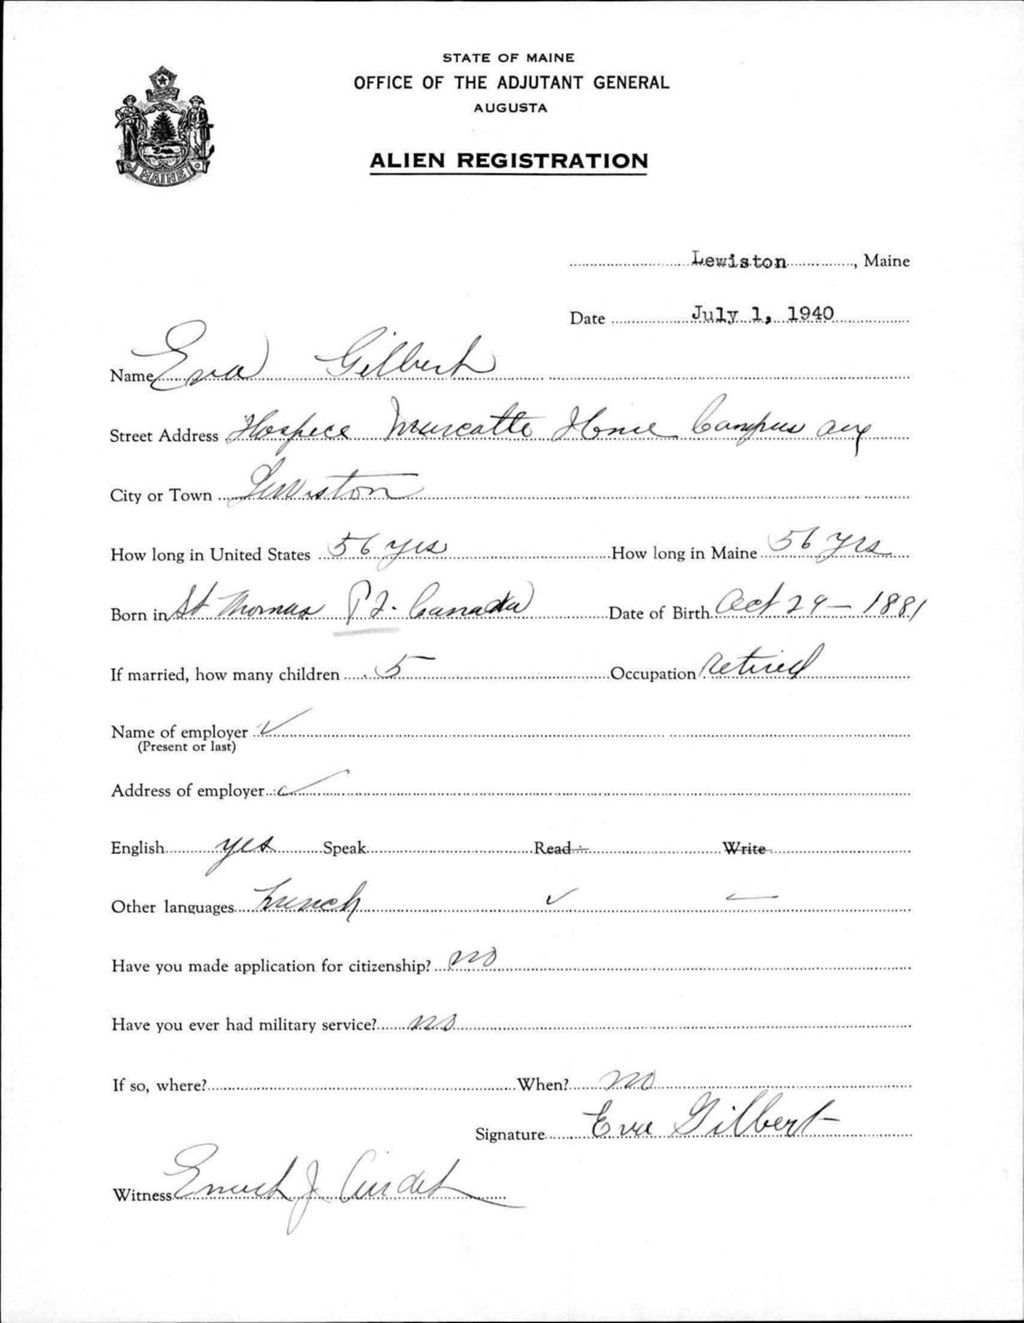 STATE OF MAINE
OFFICE OF THE ADJUTANT GENERAL
AUGUSTA
ALIEN REGISTRATION
MAINE
Lewiston, Maine
Date July 1, 1940
Name Eva Gilbert
Street Address Hospice Marcotte Home Campus ave
City or Town Lewiston
How long in United States 56 yrs How long in Maine 56 yrs
Born in St Thomas P2. Canada Date of Birth Oct 29 - 1881
If married, how many children 5 Occupation retired
Name of employer ✓
(Present or last)
Address of employer ✓
English yes Speak Read Write
Other languages french ✓ —
Have you made application for citizenship? no
Have you ever had military service? no
If so, where? When? no
Signature Eva Gilbert
Witness J